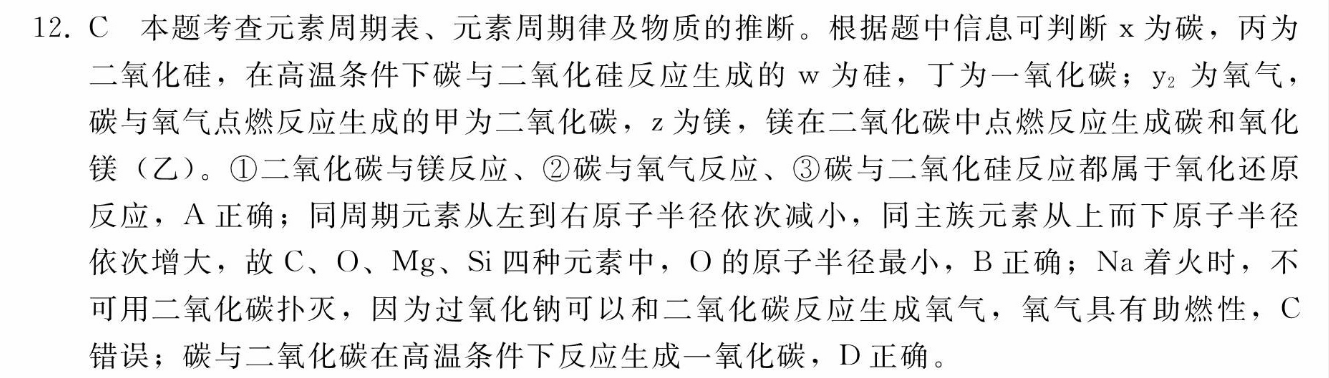 12. C 本题考查元素周期表、元素周期律及物质的推断。根据题中信息可判断 x 为碳，丙为
二氧化硅，在高温条件下碳与二氧化硅反应生成的 w 为硅，丁为一氧化碳；y₂ 为氧气，
碳与氧气点燃反应生成的甲为二氧化碳，z 为镁，镁在二氧化碳中点燃反应生成碳和氧化
镁（乙）。①二氧化碳与镁反应、②碳与氧气反应、③碳与二氧化硅反应都属于氧化还原
反应，A 正确；同周期元素从左到右原子半径依次减小，同主族元素从上而下原子半径
依次增大，故 C、O、Mg、Si 四种元素中，O 的原子半径最小，B 正确；Na 着火时，不
可用二氧化碳扑灭，因为过氧化钠可以和二氧化碳反应生成氧气，氧气具有助燃性，C
错误；碳与二氧化碳在高温条件下反应生成一氧化碳，D 正确。